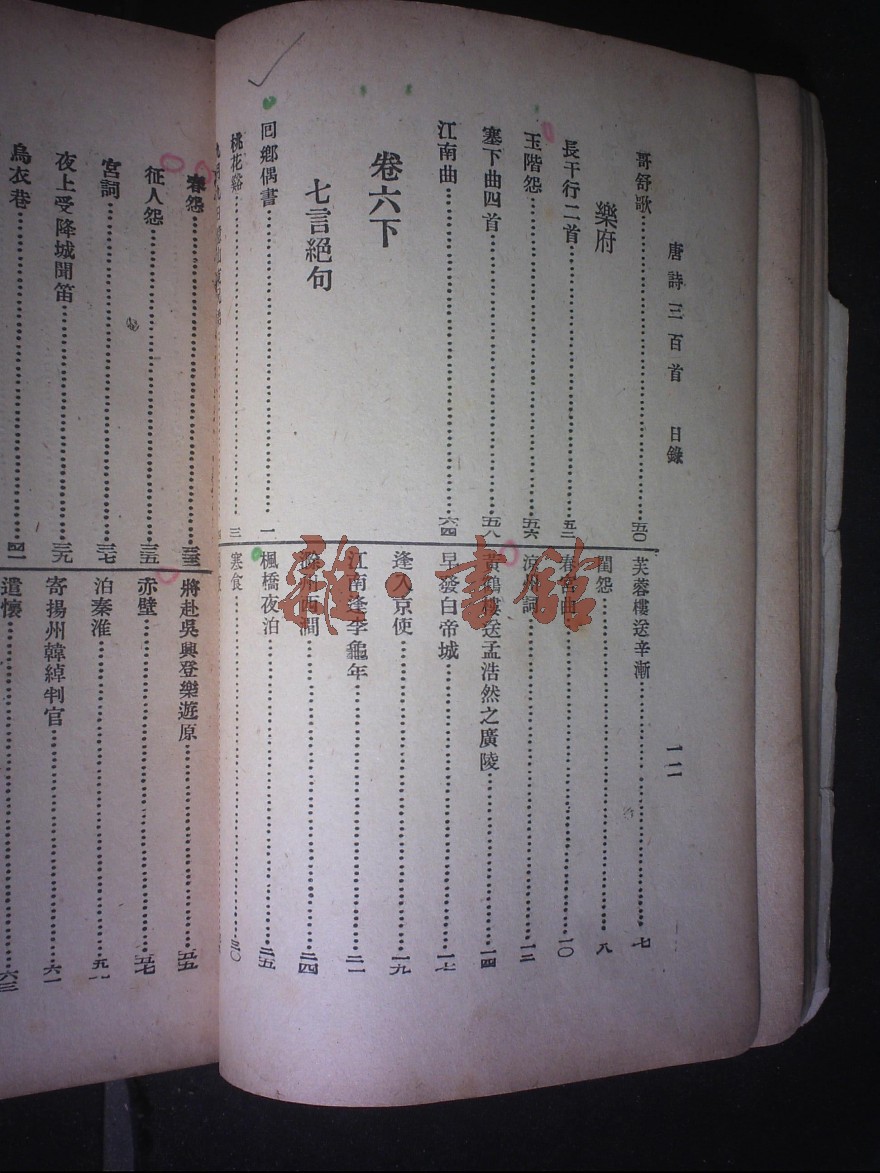 唐詩三百首　目錄
一二
哥舒歌……五〇
樂府
長干行二首……五二
玉階怨……五六
塞下曲四首……五八
江南曲……六四
卷六下
七言絕句
回鄉偶書……一
桃花谿……三
芙蓉樓送辛漸……七
閨怨……八
春宮曲……一〇
涼州詞……一二
黃鶴樓送孟浩然之廣陵……一四
早發白帝城……一七
逢入京使……一九
江南逢李龜年……二一
滁州西澗……二四
楓橋夜泊……二五
寒食……三〇
春怨……三三
征人怨……三五
宮詞……三七
夜上受降城聞笛……三九
烏衣巷……四一
將赴吳興登樂遊原……五五
赤壁……五七
泊秦淮
寄揚州韓綽判官……六一
遣懷……六三
雜·書館